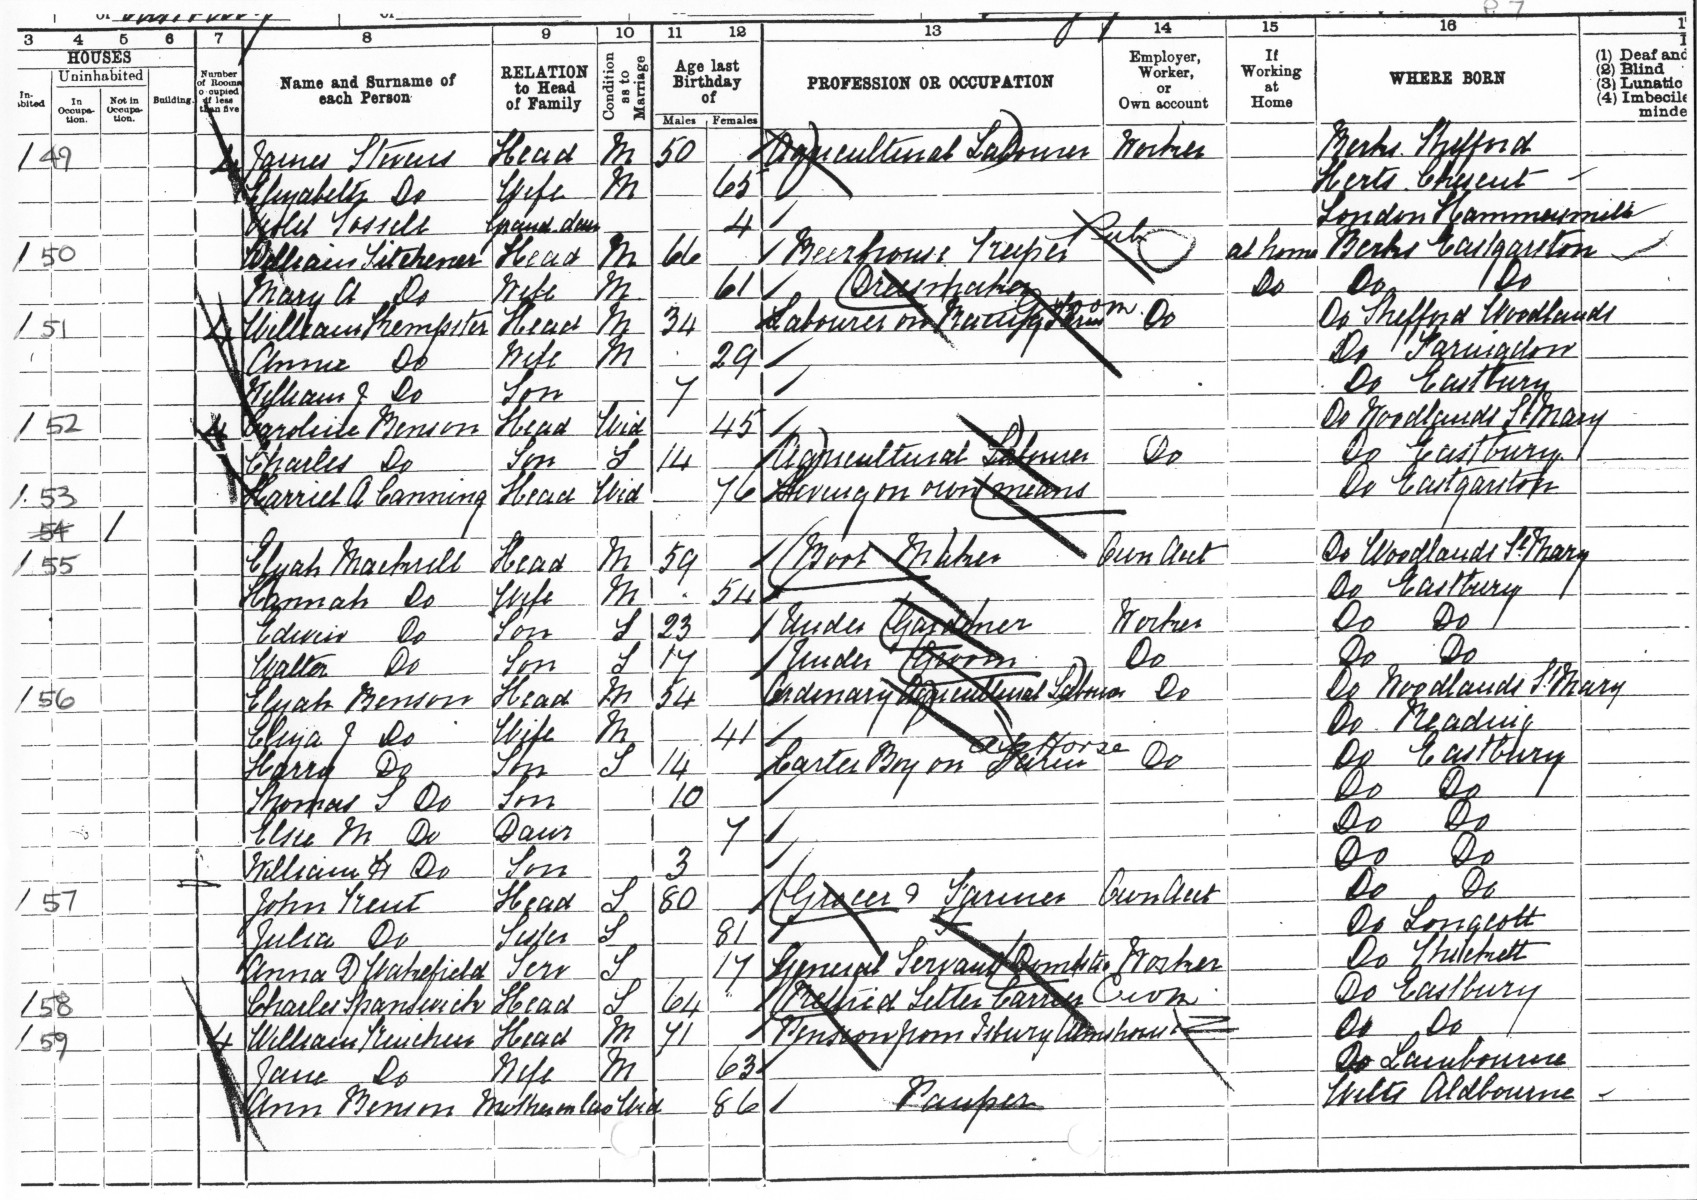 P. 7
3 4 5 6 7 8 9 10 11 12 13 14 15 16
HOUSES
In-habited
Uninhabited
In Occupa-tion.
Not in Occupa-tion.
Building.
Number of Rooms occupied if less than five
Name and Surname of each Person
RELATION to Head of Family
Condition as to Marriage
Age last Birthday of
Males Females
PROFESSION OR OCCUPATION
Employer, Worker, or Own account
If Working at Home
WHERE BORN
(1) Deaf and
(2) Blind
(3) Lunatic
(4) Imbecile
minde
1 49 4 James Stevens Head M 50 Agricultural Labourer Worker Berks Shefford
Elizabeth Do Wife M 65 Herts
Grand daur 4 London Hammersmith
1 50 William Head M 66 Beerhouse Keeper Pub at home Berks Eastgarston
Mary A Do Wife M 61 Dressmaker Do Do Do
1 51 4 William Kempster Head M 34 Labourer on Groom Do Do Shefford Woodlands
Annie Do Wife M 29 Do Faringdon
William J Do Son 7 Do Eastbury
1 52 4 Caroline Benson Head Wid 45 Do Woodlands St Mary
Charles Do Son S 14 Agricultural Labourer Do Do Eastbury
1 53 Harriet A Canning Head Wid 76 Living on own means Do Eastgarston
54 1
1 55 Elijah Mackrell Head M 59 Boot Maker Own Acct Do Woodlands St Mary
Hannah Do Wife M 54 Do Eastbury
Edwin Do Son S 23 Under Gardner Worker Do Do
Walter Do Son S 17 Under Groom Do Do Do
1 56 Elijah Benson Head M 54 Ordinary Agricultural Labourer Do Do Woodlands St Mary
Eliza J Do Wife M 41 Do Reading
Harry Do Son S 14 Carter Boy on Farm Horse Do Do Eastbury
Thomas S Do Son 10 Do Do
Elsie M Do Daur 7 Do Do
William H Do Son 3 Do Do
1 57 John Kent Head S 80 Grocer & Farmer Own Acct Do Do
Julia Do Sister S 81 Do Longcott
Anna D Wakefield Serv S 17 General Servant Domestic Worker Do
1 58 Charles Spanswick Head S 64 Retired Letter Carrier Do Eastbury
1 59 4 William Head M 71 Pension from Isbury Almshouse Do Do
Jane Do Wife M 63 Do Lambourne
Ann Benson Mother in law Wid 86 Pauper Wilts Aldbourne